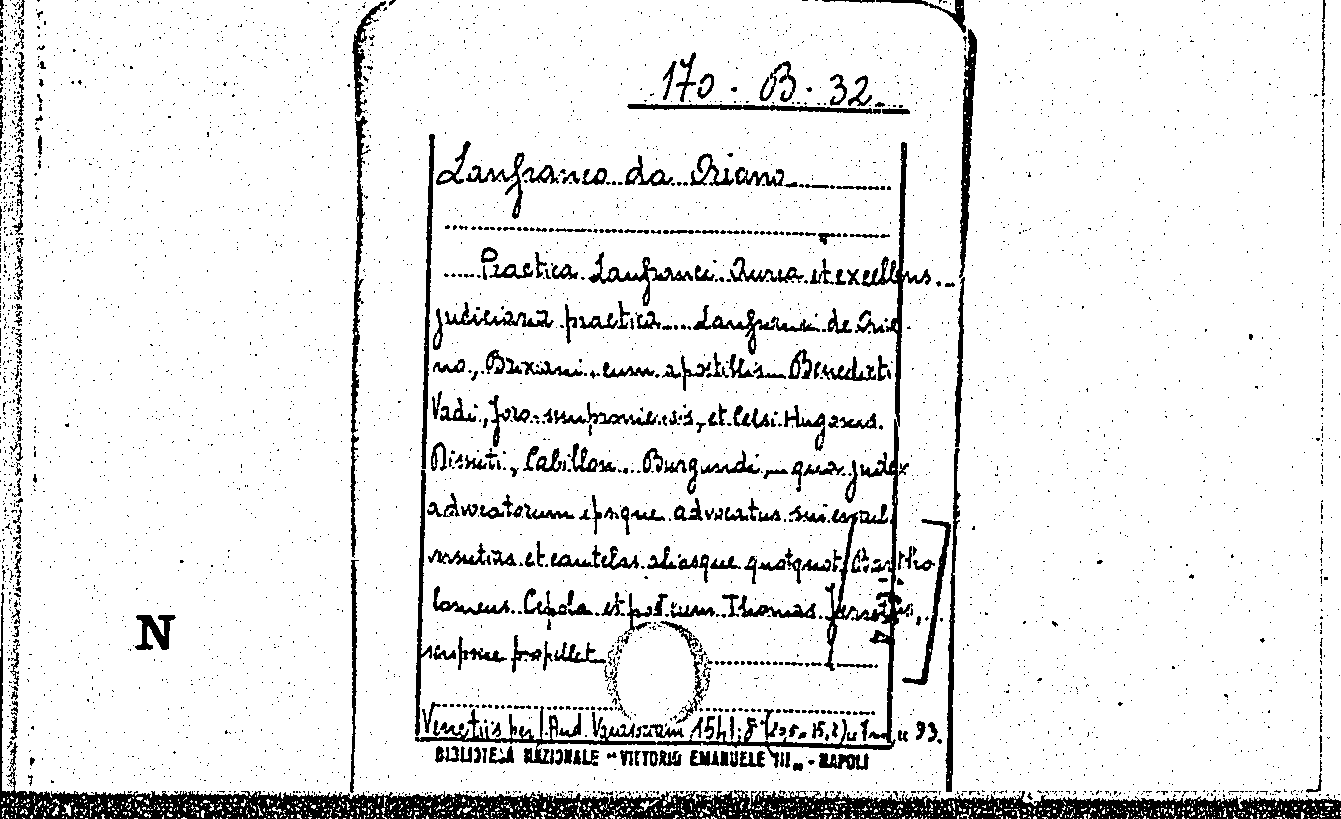 170 · B · 32.
Lanfranco da Oriano
Practica Lanfranci Aurea et excellens
judiciaria practica Lanfranci de Oria
no, Brixiani cum apostillis Benedicti
Vadi, foro-semproniensis, et Celsi Hugonis
Dissuti, Cabillon. Burgundi, quas judex
advocatorum ipsique advocatus sui
et cautelas aliasque quotquot Bartho
lomeus Cepola et Thomas
propellet
Venetiis per 1541; 8°
BIBLIOTECA NAZIONALE "VITTORIO EMANUELE III" - NAPOLI
N